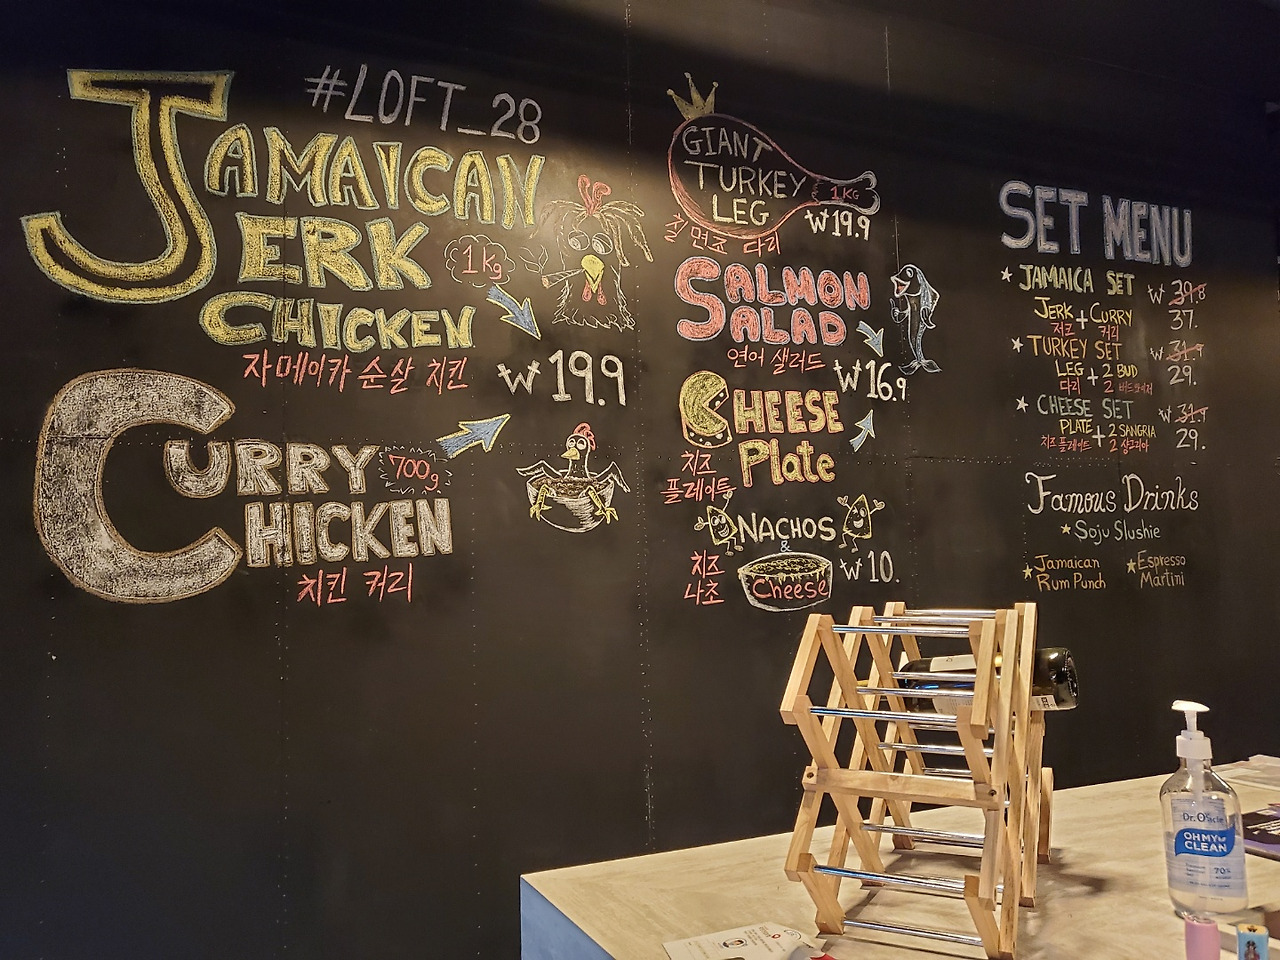 #LOFT_28
JAMAICAN
JERK
CHICKEN
1kg
자메이카 순살 치킨
₩19.9
CURRY
CHICKEN
700g
치킨 커리
GIANT
TURKEY
LEG
1KG
₩19.9
칠면조 다리
SALMON
SALAD
연어 샐러드
₩16.9
CHEESE
Plate
치즈
플레이트
NACHOS
&
Cheese
치즈
나초
₩10.
SET MENU
JAMAICA SET ₩ 39.8
JERK + CURRY 37.
저크 커리
TURKEY SET ₩ 31.9
LEG + 2 BUD 29.
다리 2
CHEESE SET ₩ 31.9
PLATE + 2 SANGRIA 29.
치즈플레이트 2 샹그리아
Famous Drinks
Soju Slushie
Jamaican
Rum Punch
Espresso
Martini
OH MY
CLEAN
70%